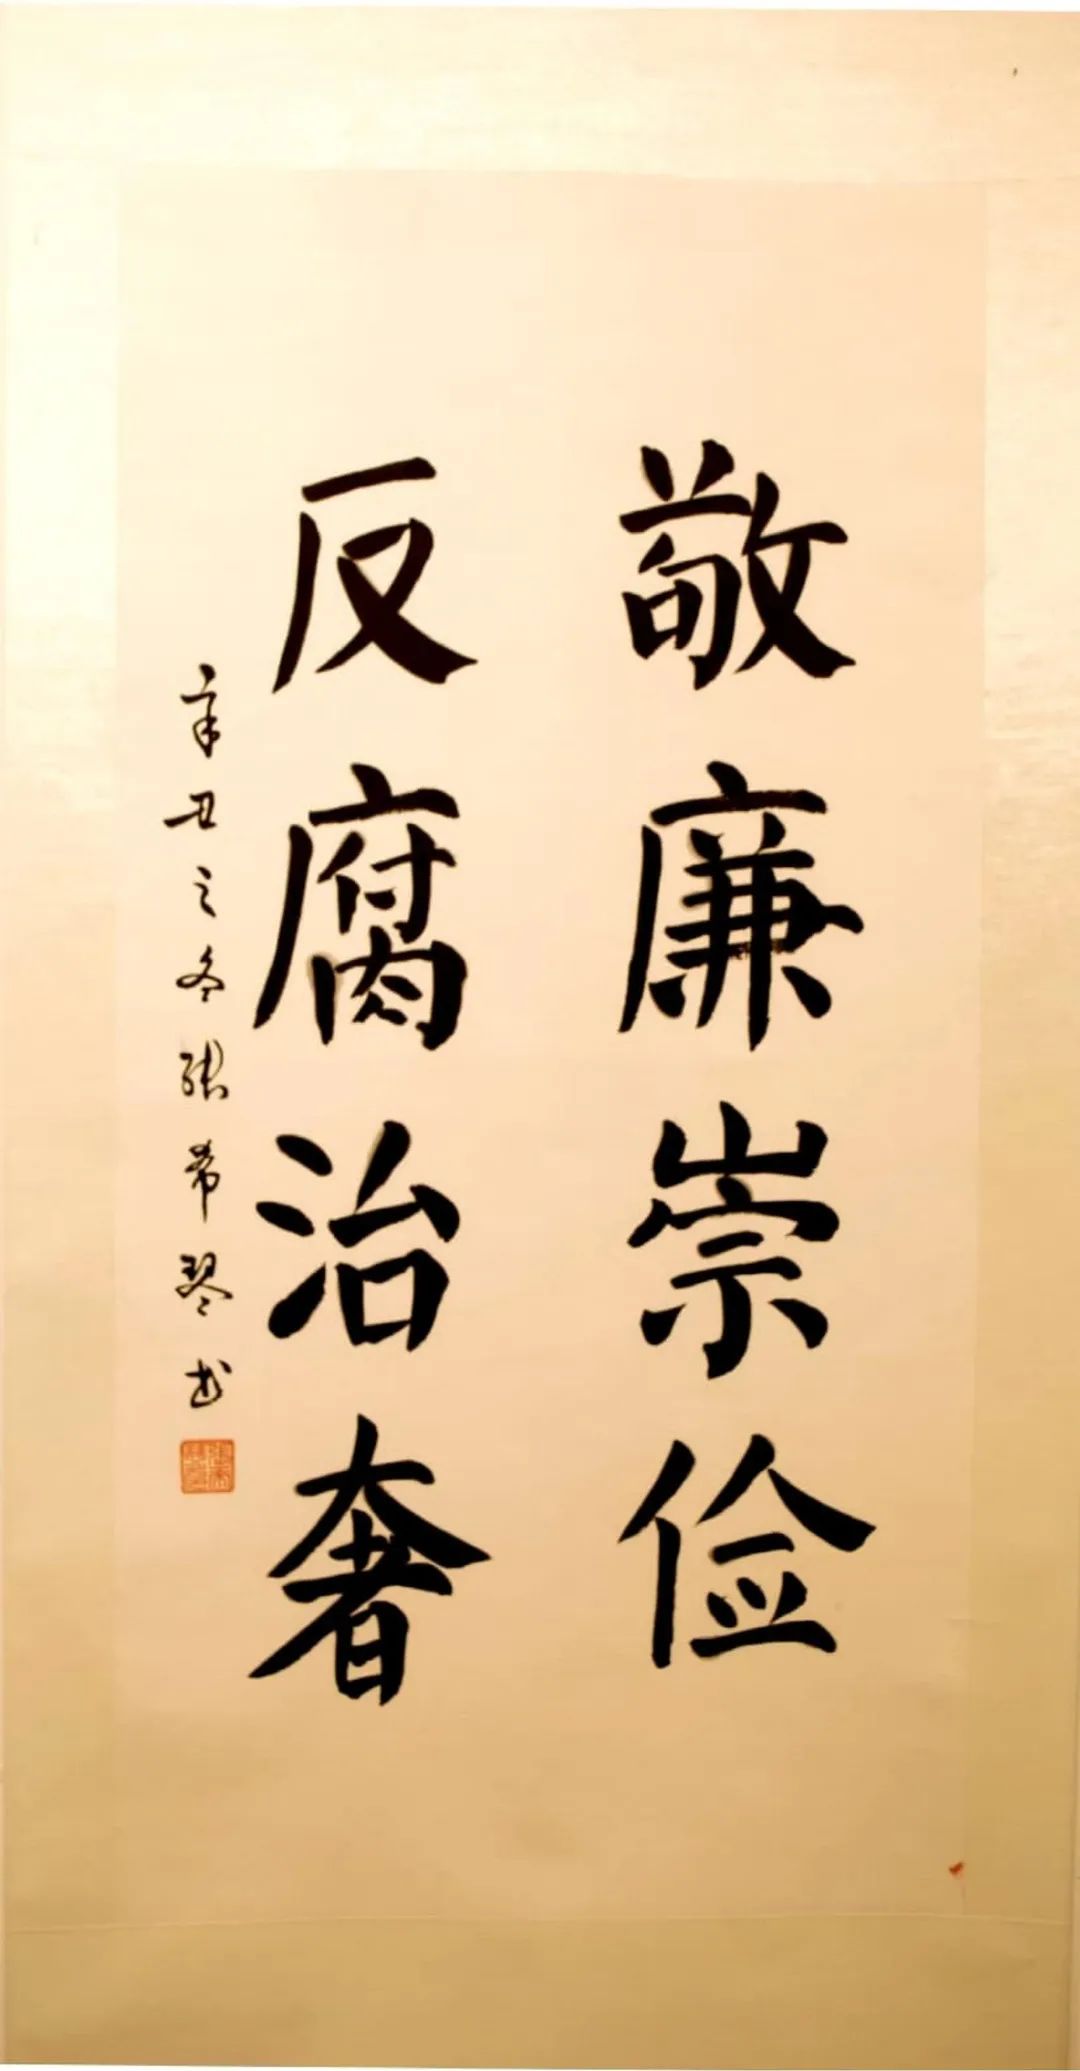 敬廉崇俭
反腐治奢
辛丑之冬张希琴书